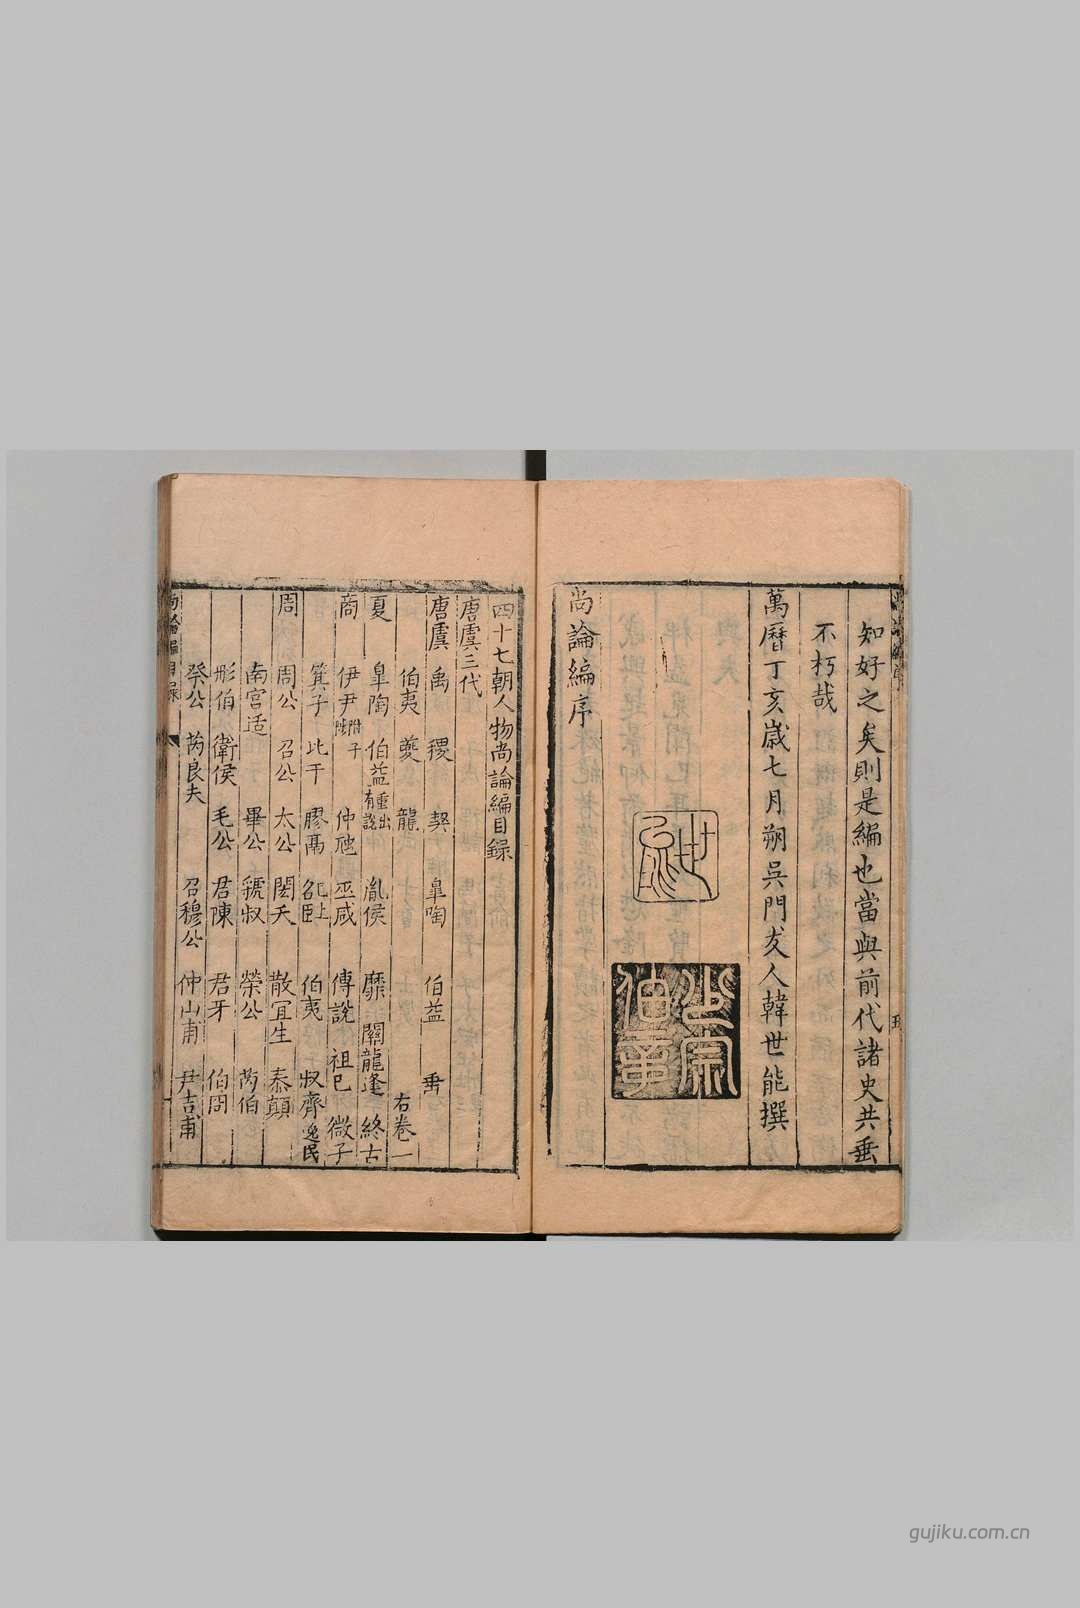 知好之矣則是編也當與前代諸史共垂
不朽哉
萬曆丁亥歲七月朔吳門友人韓世能撰
世能
尚論編序
四十七朝人物尚論編目錄
唐虞三代
唐虞 禹 稷 契 皐陶 伯益 垂
伯夷 夔 龍 右卷一
夏 皐陶 伯益重出有說 胤侯 靡 關龍逢 終古
商 伊尹附 仲虺 巫咸 傅說 祖己 微子
箕子 比干 膠鬲 伯夷 叔齊逸民
周 周公 召公 太公 閎夭 散宜生 泰顛
南宮适 畢公 虢叔 榮公 芮伯
彤伯 衛侯 毛公 君陳 君牙 伯冏
癸公 芮良夫 召穆公 仲山甫 尹吉甫
尚論編目錄
gujiku.com.cn